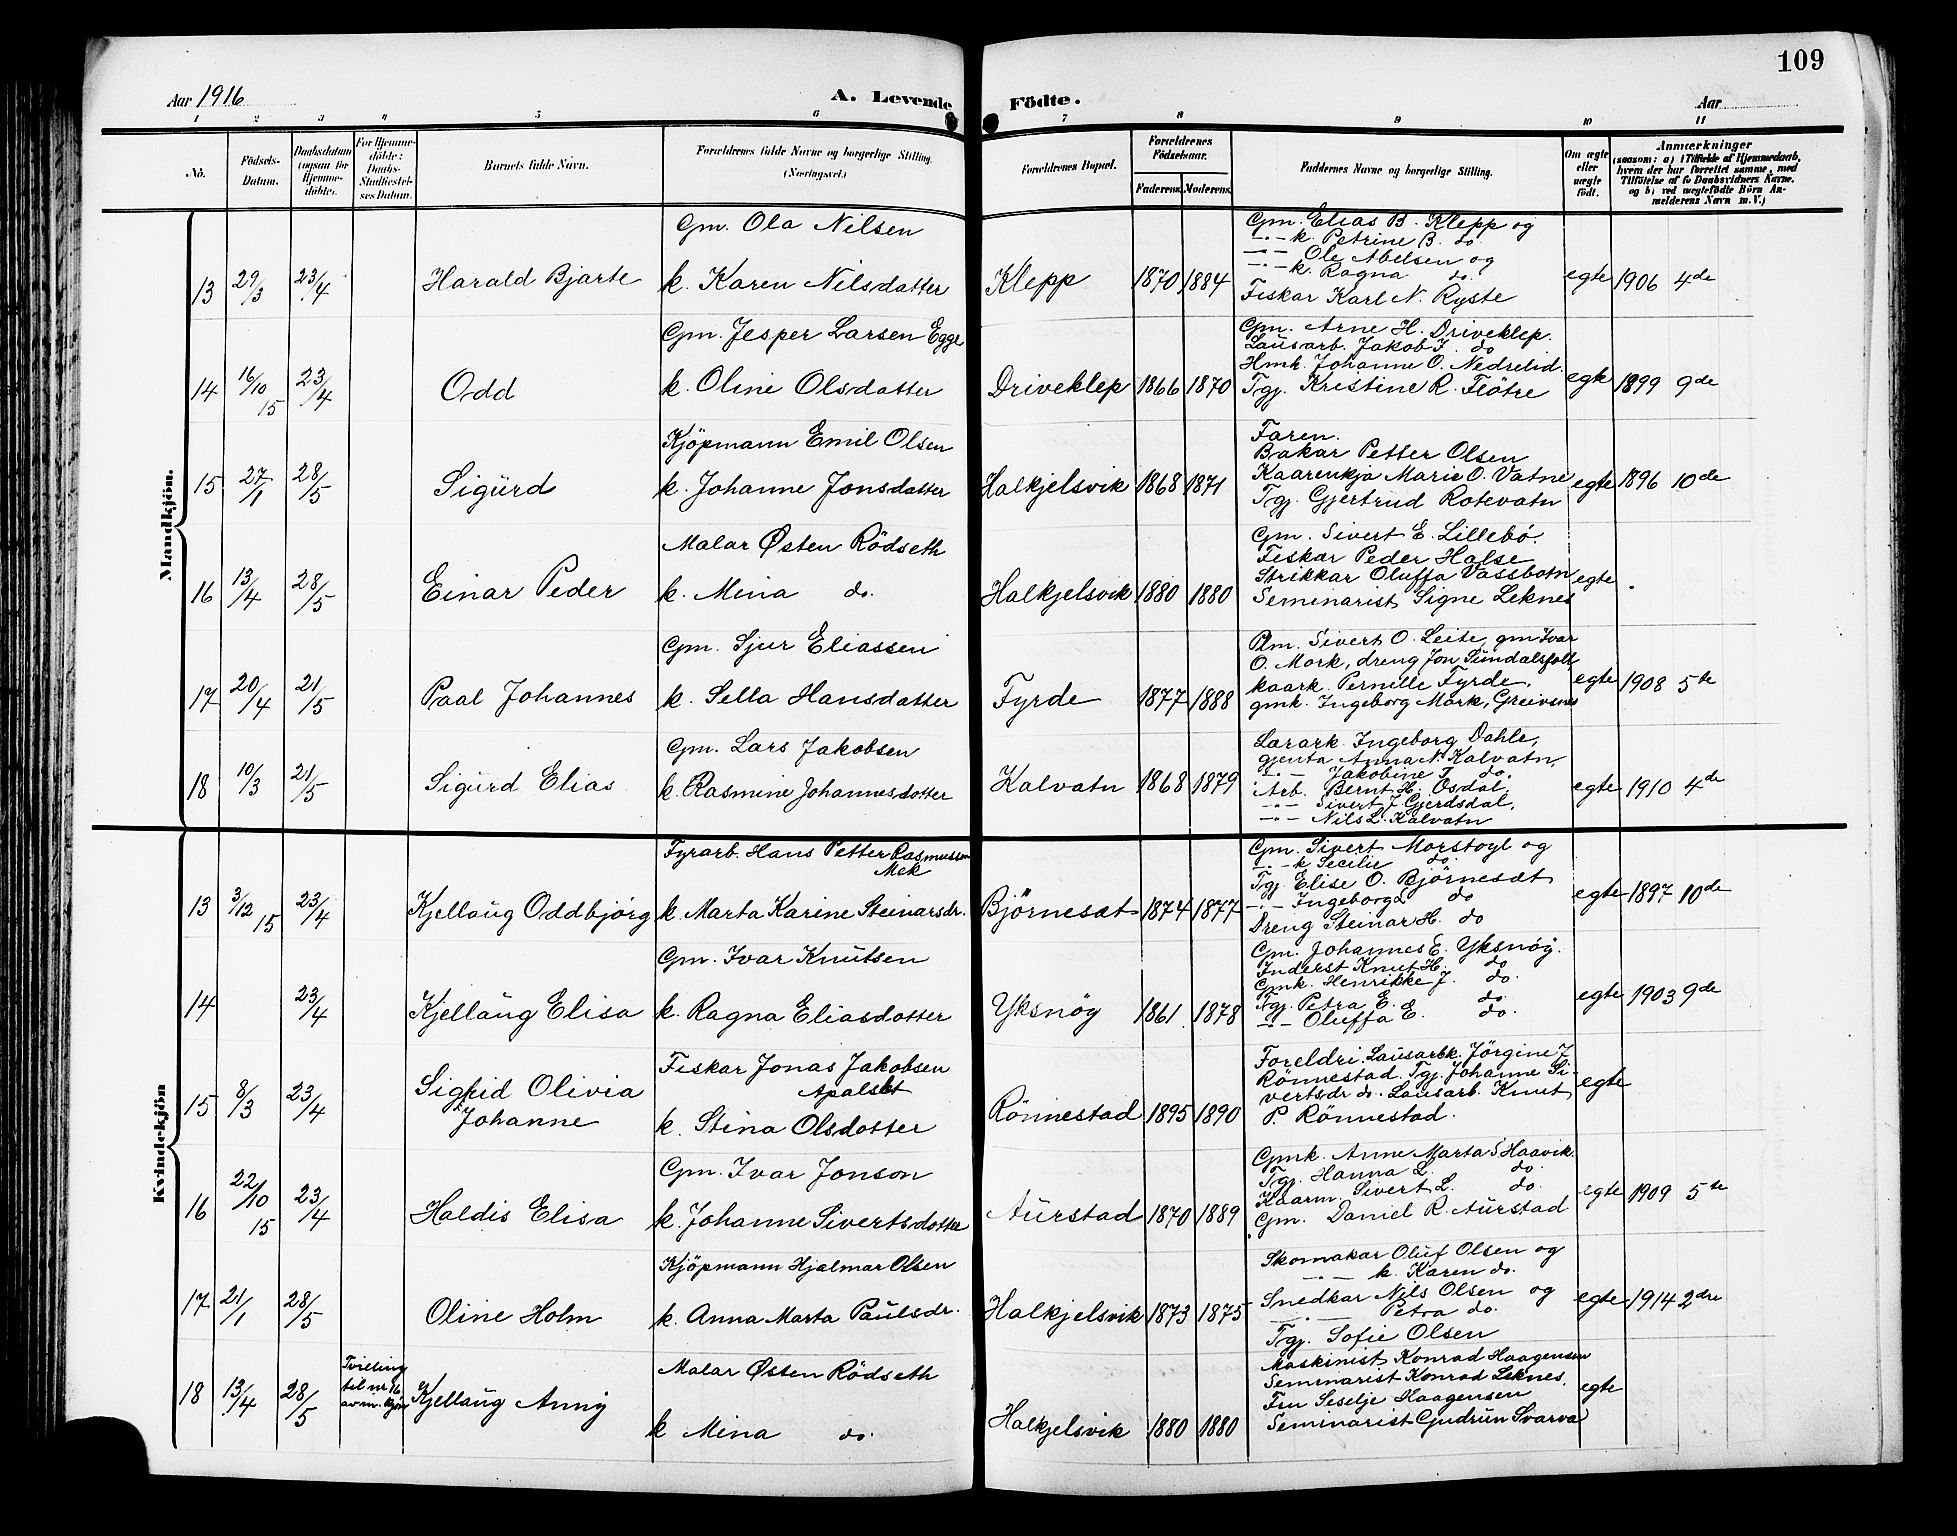 109
Aar 1916
A. Levende Födte.
Aar
1 2 3 4 5 6 7 8 9 10 11
No.
Födsels-Datum.
Daabsdatum (ogsaa for Hjemme-döbte).
For Hjemme-döbte: Daabs-Stadfæstel-ses Datum.
Barnets fulde Navn.
Forældrenes fulde Navne og borgerlige Stilling.
(Næringsvei.)
Forældrenes Bopæl.
Forældrenes Födselsaar.
Faderens. Moderens.
Faddernes Navne og borgerlige Stilling.
Om ægte eller uægte födt.
Anmærkninger
(saasom: a) i Tilfælde af Hjemmedaab,
hvem der har forrettet samme, med
Tilföielse af to Daabsvidners Navne,
og b) ved uægtefödte Börn An-
melderens Navn m. V.)
Mandkjön.
Gm. Ola Nilsen
13 29/3 23/4 Harald Bjarte k. Karen Nilsdatter Klepp 1870 1884
Gm. Elias B. Klepp og
-"- k. Petrine B. do.
-"- Ole Abelsen og
-"- k. Ragna do
Fiskar Karl N. Ryste
egte 1906 4de
Gm. Jesper Larsen Egge
14 16/10 15 23/4 Odd k. Oline Olsdatter Driveklep 1866 1870
Gm. Arne H. Driveklep.
Lausarb. Jakob J. do
Hmk. Johanne O. Nedrelid.
Tgj. Kristine R. Flötre
egte 1899 9de
Kjöpmann Emil Olsen
15 27/1 28/5 Sigurd k. Johanne Jonsdatter Halkjelsvik 1868 1871
Faren.
Bakar Petter Olsen
Kaarenkja Marie O. Vatne
Tgj. Gjertrud Rotevatn
egte 1896 10de
Malar Østen Rödseth
16 13/4 28/5 Einar Peder k. Mina do. Halkjelsvik 1880 1880
Gm. Sivert E. Lillebö.
Fiskar Peder Halse
Strikkar Oluffa Vassbotn
Seminarist Signe Leknes
egte
Gm. Sjur Eliassen
17 20/4 21/5 Paal Johannes k. Sella Hansdatter Fyrde 1877 1888
Plm. Sivert O. Leite, gm Ivar
O. Mork, dreng Jon Sundalsfoll,
kaark. Pernille Fyrde,
gmk. Ingeborg Mork, Greivsnes
egte 1908 5te
Gm. Lars Jakobsen
18 10/3 21/5 Sigurd Elias k. Rasmine Johannesdotter Kalvatn 1868 1879
Lærark. Ingeborg Dahle,
gjenta Anna N. Kalvatn,
-"- Jakobine T. do.
Arb. Bernt H. Osdal,
-"- Sivert J. Gjerdsdal,
-"- Nils L. Kalvatn
egte 1910 4de
Kvindekjön
Fyrarb. Hans Petter Rasmussen
Mek
13 3/12 15 23/4 Kjellaug Oddbjørg k. Marta Karine Steinarsdr. Bjørnesæt 1874 1877
Gm. Sivert Morstoyl og
-"- k Secilie do.
Tgj. Elise O. Björnesæt
-"- Ingeborg L do
Dreng Steinar H. do
egte 1897 10de
Gm. Ivar Knutsen
14 23/4 Kjellaug Elisa k. Ragna Eliasdotter Yksnöy 1861 1878
Gm. Johannes E. Yksnöy.
Inderst Knut H. do
Gmk. Henrikke J. do.
Tgj. Petra E. do.
-"- Oluffa E. do.
egte 1903 9de
Fiskar Jonas Jakobsen
Apalset
15 8/3 23/4 Sigrid Olivia Johanne k. Stina Olsdotter Rönnestad 1895 1890
Foreldri. Lausarbk. Jörgine J
Rönnestad. Tgj. Johanne Si-
vertsdr do. Lausarb. Knut
P. Rönnestad.
egte
Gm. Ivar Jonson
16 22/10 15 23/4 Haldis Elisa k. Johanne Sivertsdotter Aurstad 1870 1889
Gmk. Anne Marta S Haavik.
Tgj. Hanna L. do.
Kaarm. Sivert L. do.
Gm. Daniel R. Aurstad
egte 1909 5te
Kjöpmann Hjalmar Olsen
17 21/1 28/5 Oline Holm k. Anna Marta Paulsdr. Halkjelsvik 1873 1875
Skomakar Oluf Olsen og
-"- k. Karen do.
Snedkar Nils Olsen og
-"- Petra do.
Tgj. Sofie Olsen
egte 1914 2dre
Malar Østen Rödseth
18 13/4 28/5 Tvilling til nr 16 av m. kjön Kjellaug Anny k Mina do. Halkjelsvik 1880 1880
Maskinist Konrad Haagensen
Seminarist Konrad Leknes.
Fru Seselje Haagensen
Seminarist Gudrun Svarva
egte